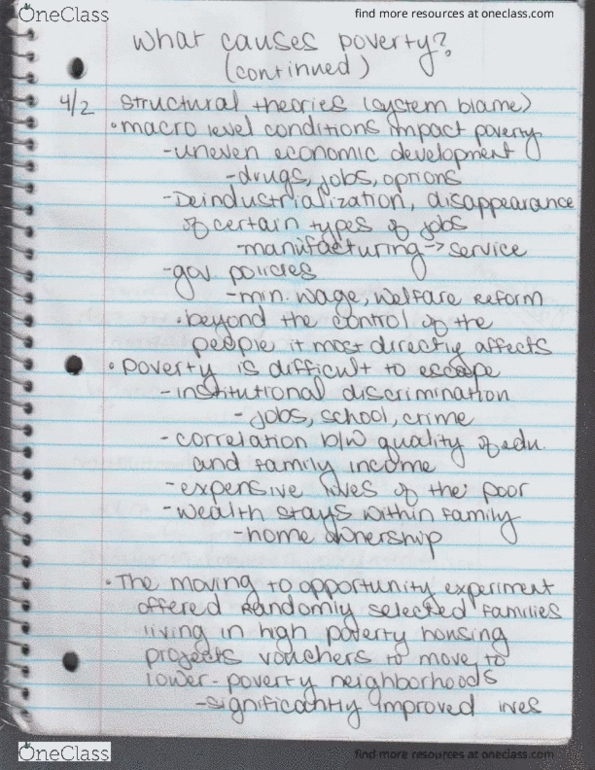 OneClass
find more resources at oneclass.com
What causes poverty?
(continued)
4/2 Structural theories (system blame)
• macro level conditions impact poverty
- uneven economic development
- drugs, jobs, options
- Deindustrialization, disappearance
of certain types of jobs
- manufacturing → service
- gov. policies
- min. wage, welfare reform
• beyond the control of the
people it most directly affects
• poverty is difficult to escape
- institutional discrimination
- jobs, school, crime
- correlation b/w quality of edu.
and family income
- expensive lives of the poor
- wealth stays within family
- home ownership
• The moving to opportunity experiment
offered randomly selected families
living in high poverty housing
projects vouchers to move to
lower-poverty neighborhoods
- significantly improved lives
OneClass
find more resources at oneclass.com